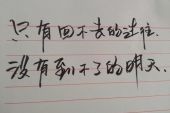 只有回不去的过往.
没有到不了的明天.